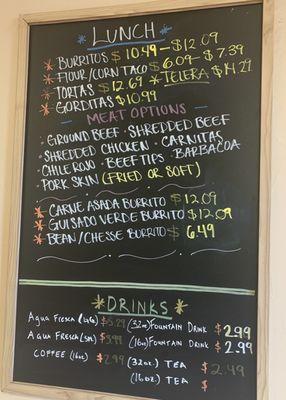 LUNCH
* BURRITOS $10.49 - $12.09
* FLOUR/CORN TACO $6.09 - $7.39
* TORTAS $12.69 * TELERA $14.29
* GORDITAS $10.99
MEAT OPTIONS
· GROUND BEEF · SHREDDED BEEF
· SHREDDED CHICKEN · CARNITAS
· CHILE ROJO · BEEF TIPS · BARBACOA
· PORK SKIN (FRIED OR SOFT)
* CARNE ASADA BURRITO $12.09
* GUISADO VERDE BURRITO $12.09
* BEAN/CHESSE BURRITO $6.49
* DRINKS *
AGUA FRESCA (LG) $5.29 (32oz) FOUNTAIN DRINK $2.99
AGUA FRESCA (SM) $3.99 (16oz) FOUNTAIN DRINK $2.99
COFFEE (16oz) $2.99 (32oz.) TEA $2.49
(16oz.) TEA $